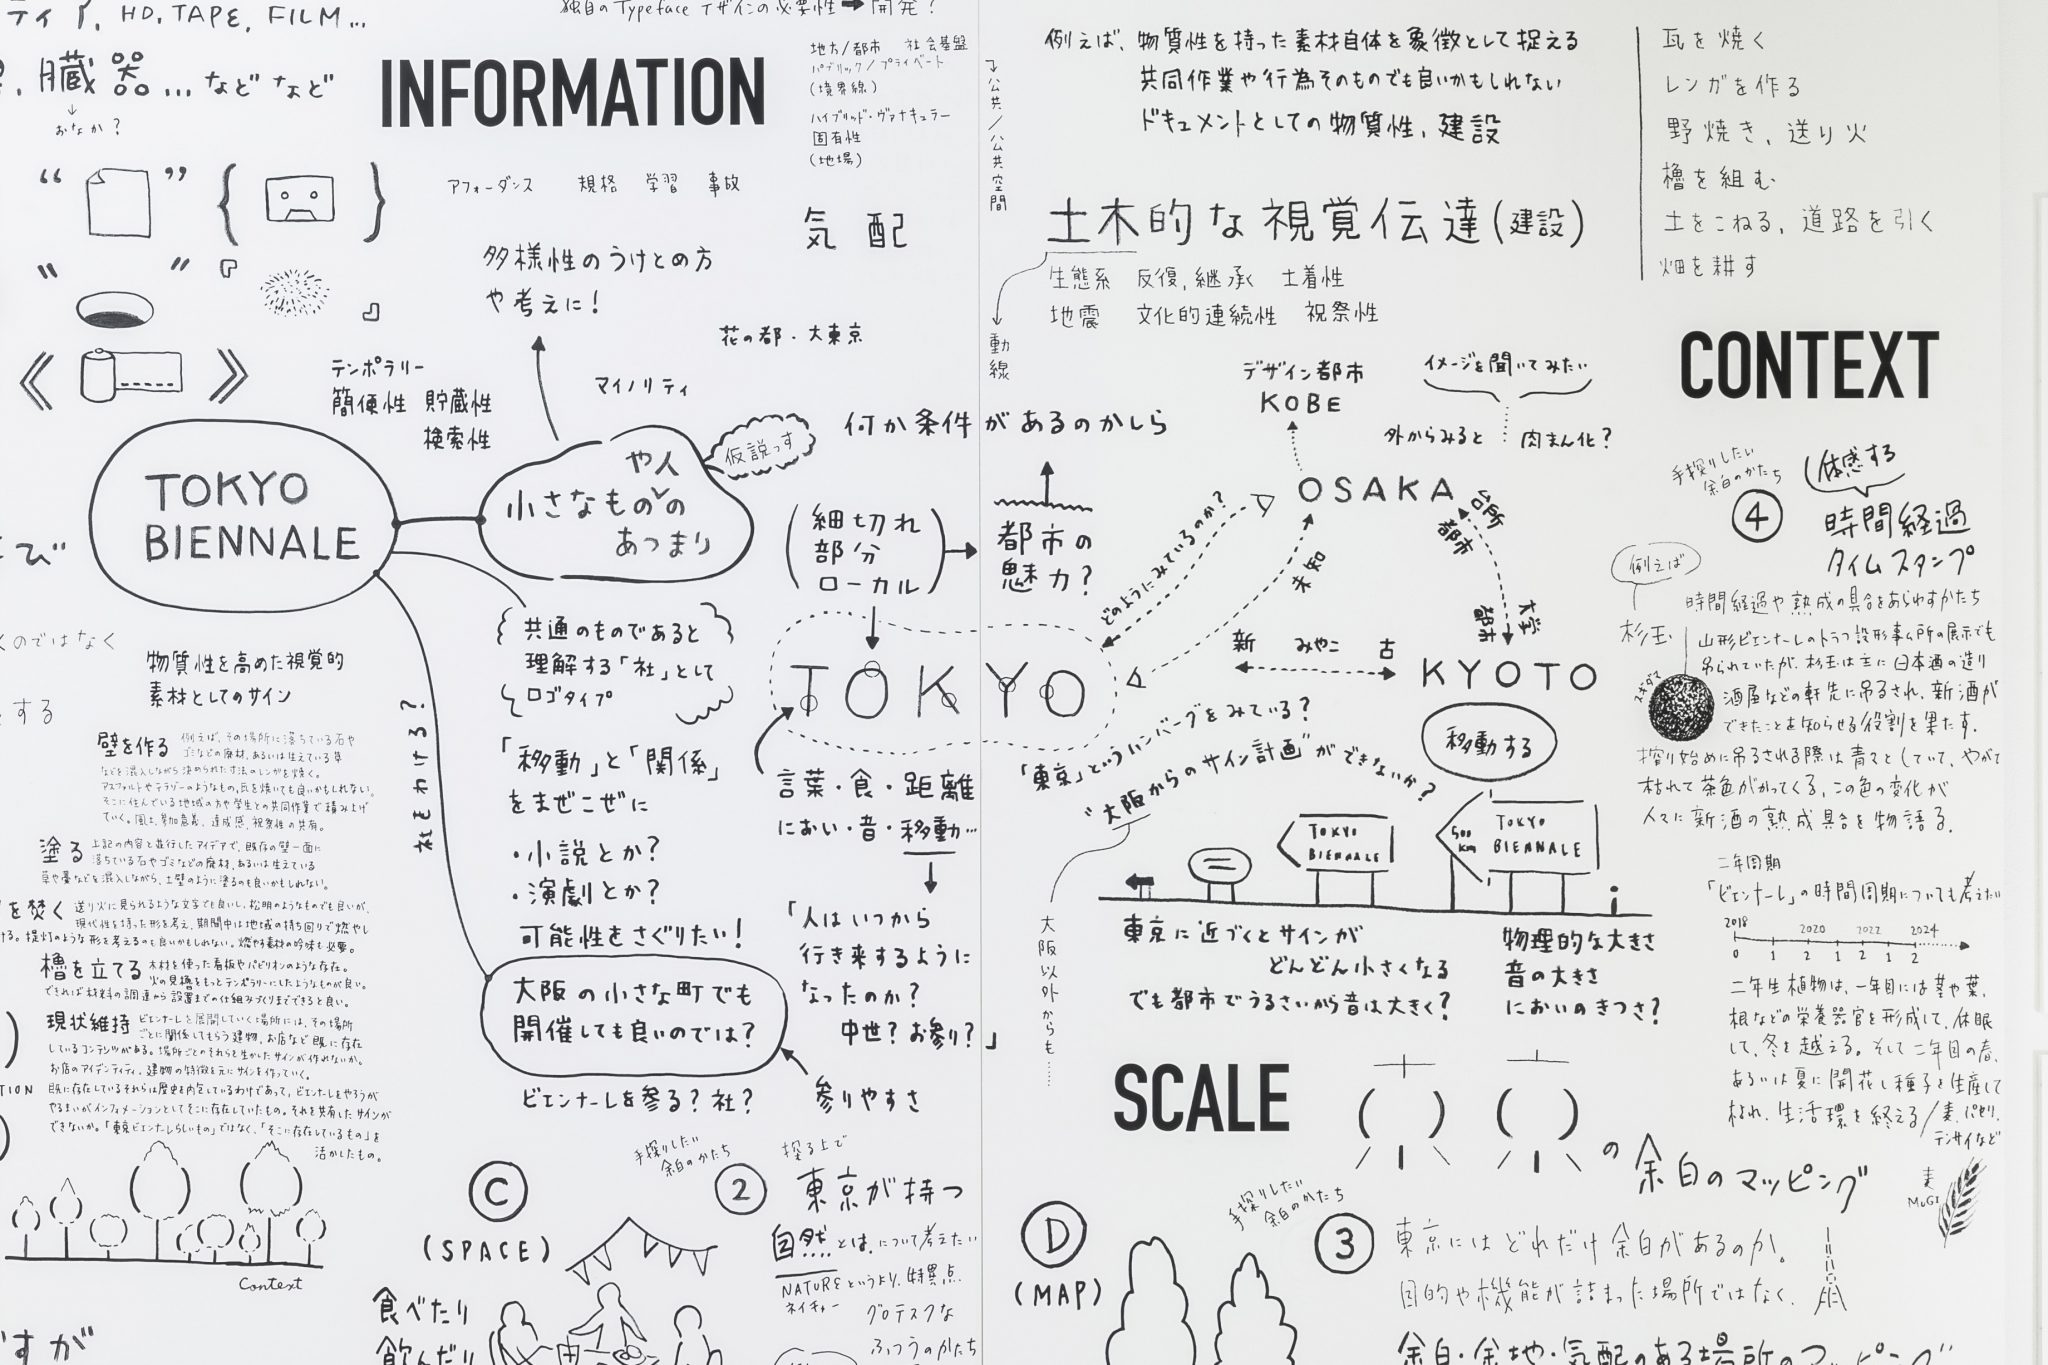 ティア, HD, TAPE, FILM...
独自のTypefaceデザインの必要性➡開発?
臓器...などなど
おなか?
INFORMATION
地方/都市 社会基盤
パブリック/プライベート
(境界線)
ハイブリッド・ヴァナキュラー
固有性
(地場)
アフォーダンス 規格 学習 事故
気配
多様性のうけとめ方
や考えに!
花の都・大東京
テンポラリー
簡便性 貯蔵性
検索性
マイノリティ
TOKYO
BIENNALE
や人
小さなものの
あつまり
仮説っす
何か条件があるのかしら
(細切れ
部分
ローカル)
都市の
魅力?
共通のものであると
理解する「社」として
ロゴタイプ
TOKYO
物質性を高めた視覚的
素材としてのサイン
くのではなく
とする
社をわける?
「移動」と「関係」
をまぜこぜに
・小説とか?
・演劇とか?
可能性をさぐりたい!
言葉・食・距離
におい・音・移動...
「人はいつから
行き来するように
なったのか?
中世?お参り?」
大阪の小さな町でも
開催しても良いのでは?
ビエンナーレを参る?社?
参りやすさ
壁を作る 例えば、その場所に落ちている石や
ゴミなどの廃材、あるいは生えている草
などを混入しながら決められた寸法のレンガを焼く。
アスファルトやテラゾーのようなもの。瓦を焼いても良いかもしれない。
そこに住んでいる地域の方や学生との共同作業で積み上げ
ていく。風土、参加意義、達成感、祝祭性の共有。
塗る 上記の内容と並行したアイデアで、既存の壁一面に
落ちている石やゴミなどの廃材、あるいは生えている
草や藁などを混入しながら、土壁のように塗るのも良いかもしれない。
を焚く 送り火に見られるような文字でも良いし、松明のようなものでも良いが、
現代性を持った形を考え、期間中は地域の持ち回りで燃やし
ける。提灯のような形を考えるのも良いかもしれない。燃やす素材の吟味も必要。
櫓を立てる 木材を使った看板やパビリオンのような存在。
火の見櫓をもっとテンポラリーにしたようなものが良い。
できれば材料の調達から設置までの仕組みづくりまでできると良い。
現状維持 ビエンナーレを展開していく場所には、その場所
ごとに関係してもらう建物、お店など既に存在
しているコンテンツがある。場所ごとのそれらを生かしたサインが作れないか。
お店のアイデンティティ、建物の特徴を元にサインを作っていく。
既に存在しているそれらは歴史を内包しているわけであって、ビエンナーレをやろうが
やるまいがインフォメーションとしてそこに存在していたもの。それを共有したサインが
できないか。「東京ビエンナーレらしいもの」ではなく、「そこに存在しているもの」を
活かしたもの。
Context
C
(SPACE)
食べたり
飲んだり
すが
手探りしたい
余白のかたち
② 探る上で
東京が持つ
自然とは、について考えたい
NATUREというより、特異点
ネイチャー
グロテスクな
ふつうのかたち
公共/公共空間
動線
例えば、物質性を持った素材自体を象徴として捉える
共同作業や行為そのものでも良いかもしれない
ドキュメントとしての物質性、建設
土木的な視覚伝達(建設)
生態系 反復, 継承 土着性
地震 文化的連続性 祝祭性
瓦を焼く
レンガを作る
野焼き, 送り火
櫓を組む
土をこねる, 道路を引く
畑を耕す
CONTEXT
デザイン都市
KOBE
イメージを聞いてみたい
外からみると 肉まん化?
OSAKA
台所
都市
どのようにみているのか?
未知
大学
都市
新 みやこ 古
KYOTO
移動する
「東京」というハンバーグをみている?
"大阪からのサイン計画"ができないか?
大阪以外からも......
TOKYO
BIENNALE
500
km
TOKYO
BIENNALE
東京に近づくとサインが
どんどん小さくなる
でも都市でうるさいから音は大きく?
物理的な大きさ
音の大きさ
においのきつさ?
SCALE
の余白のマッピング
D
(MAP)
手探りしたい
余白のかたち
③ 東京にはどれだけ余白があるのか。
目的や機能が詰まった場所ではなく、
余白・余地・気配のある場所のマッピング
手探りしたい
余白のかたち
④ 体感する
時間経過
タイムスタンプ
例えば
杉玉
スギダマ
時間経過や熟成の具合をあらわすかたち
山形ビエンナーレのトラフ設計事ム所の展示でも
吊られていたが、杉玉は主に日本酒の造り
酒屋などの軒先に吊るされ、新酒が
できたことを知らせる役割を果たす。
搾り始めに吊るされる際は青々としていて、やがて
枯れて茶色がかってくる。この色の変化が
人々に新酒の熟成具合を物語る。
二年周期
「ビエンナーレ」の時間周期についても考えたい
2018 2020 2022 2024
0 1 2 1 2 1 2
二年生植物は、一年目には茎や葉、
根などの栄養器官を形成して、休眠
して、冬を越える。そして二年目の春、
あるいは夏に開花し種子を生産して
枯れ、生活環を終える/麦、パセリ、
テンサイなど
麦
MUGI